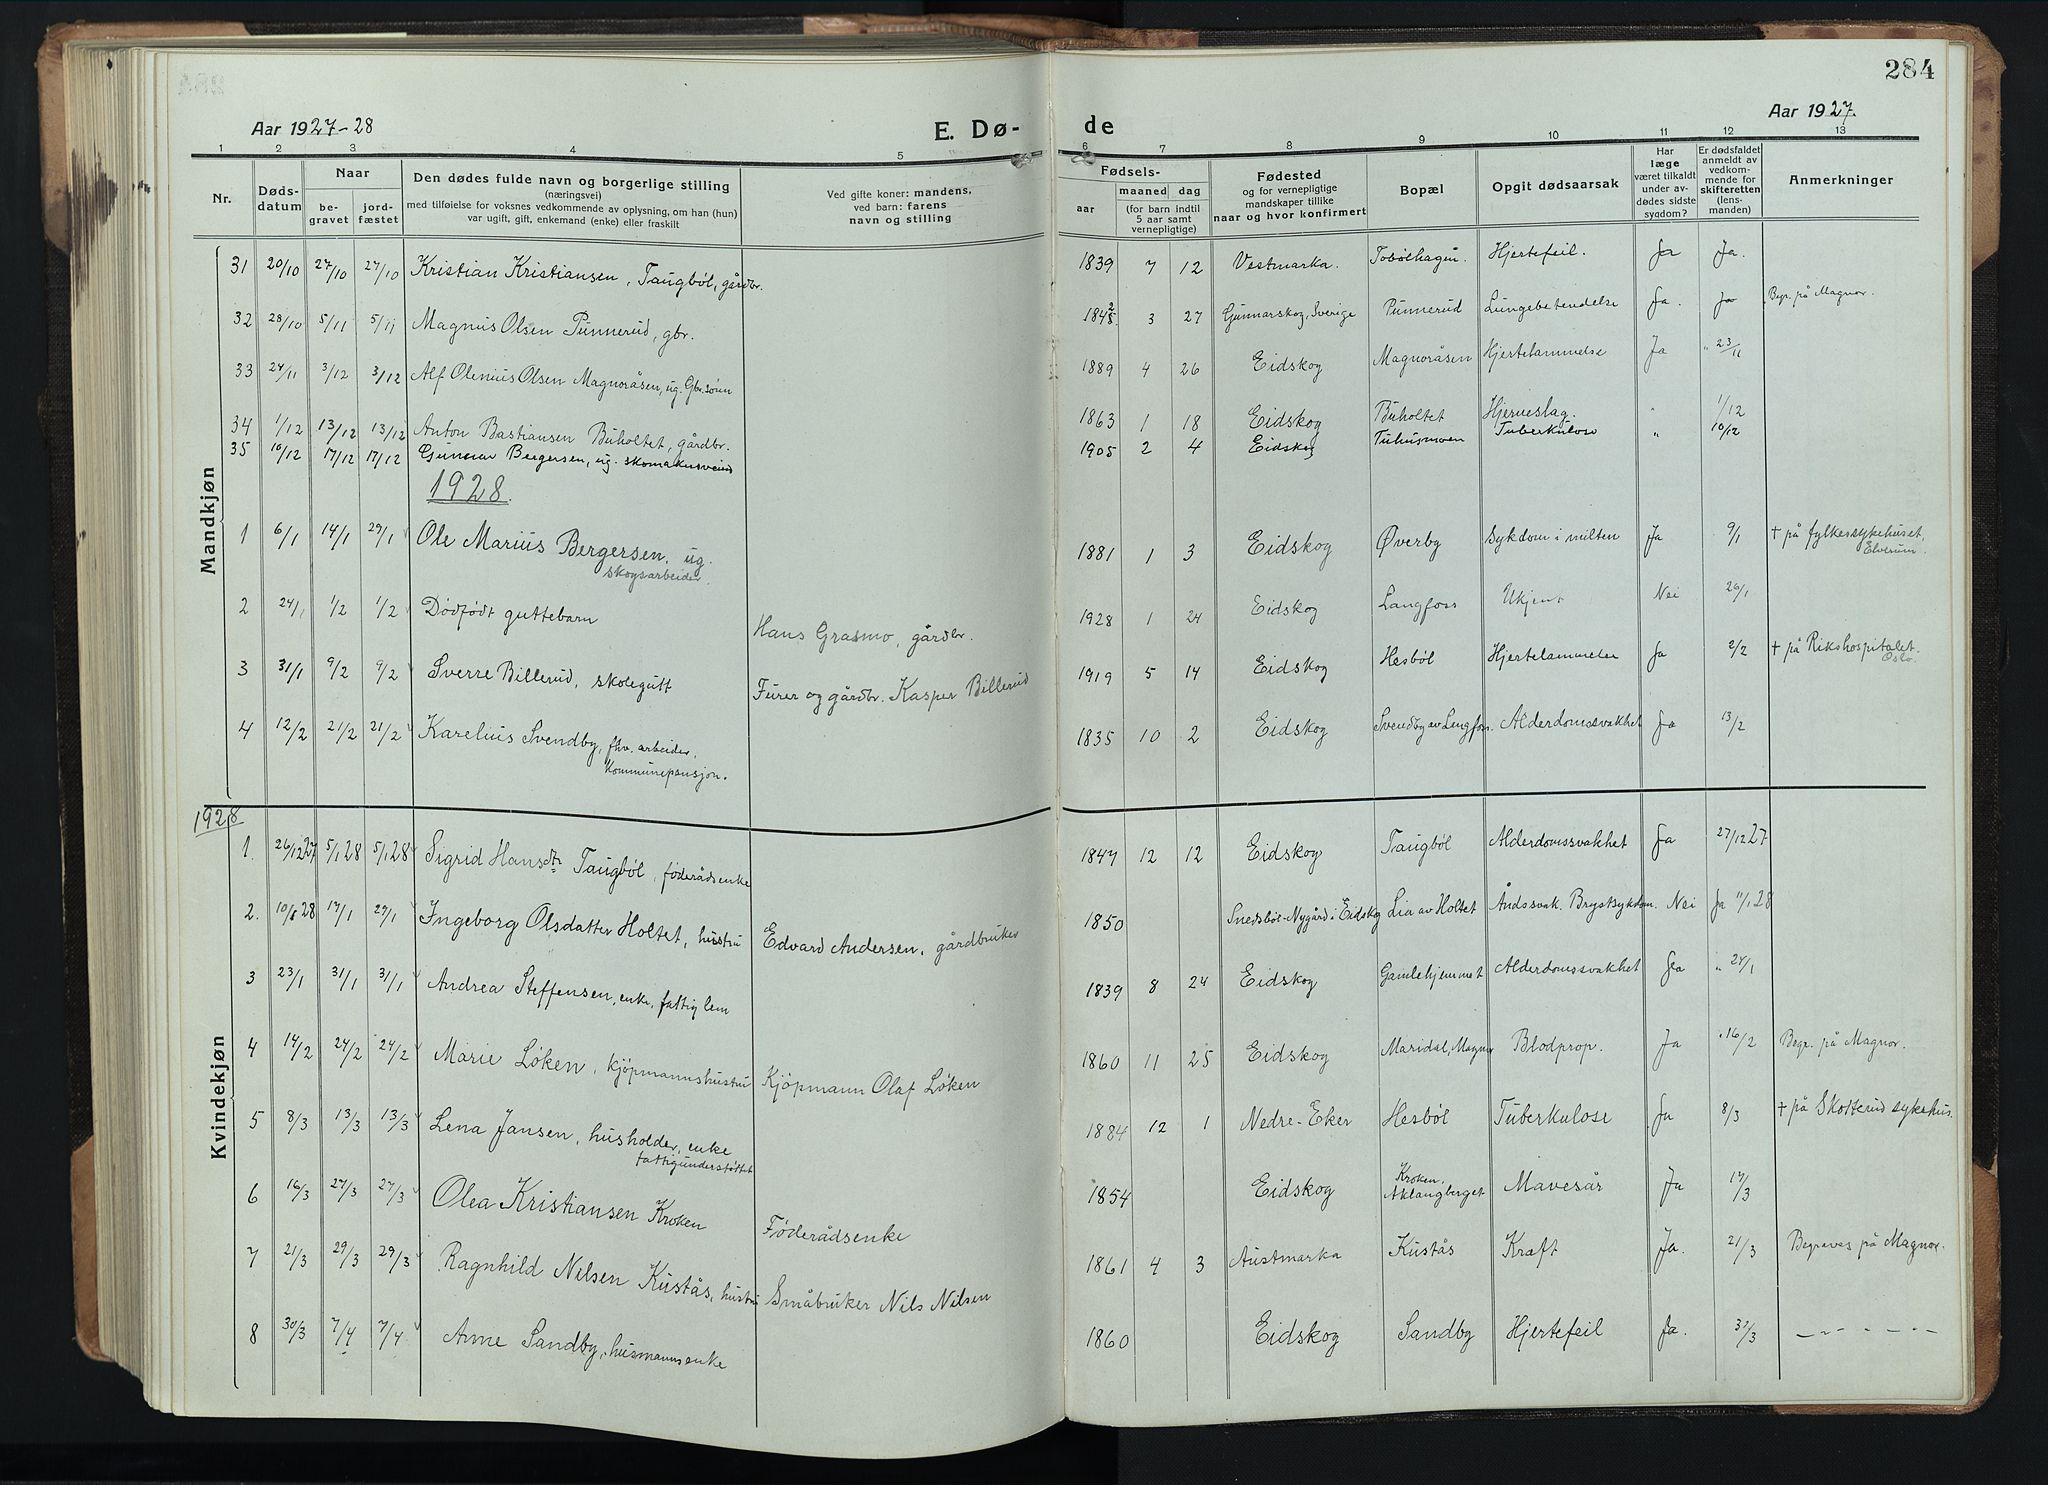 284
Aar 1927-28
E. Dø-
de
Aar 1927.
1 2 3 4 5 6 7 8 9 10 11 12 13
Nr.
Døds-
datum
Naar
be-
gravet
jord-
fæstet
Den dødes fulde navn og borgerlige stilling
(næringsvei)
med tilføielse for voksnes vedkommende av oplysning, om han (hun)
var ugift, gift, enkemand (enke) eller fraskilt
Ved gifte koner: mandens,
ved barn: farens
navn og stilling
Fødsels-
aar
maaned
dag
(for barn indtil
5 aar samt
vernepligtige)
Fødested
og for vernepligtige
mandskaper tillike
naar og hvor konfirmert
Bopæl
Opgit dødsaarsak
Har
læge
været tilkaldt
under av-
dødes sidste
sygdom?
Er dødsfaldet
anmeldt av
vedkom-
mende for
skifteretten
(lens-
manden)
Anmerkninger
Mandkjøn
31 20/10 27/10 27/10 Kristian Kristiansen, Taugbøl, gårdbr. 1839 7 12 Vestmarka. Tobølhagen. Hjertefeil. Ja Ja.
32 28/10 5/11 5/11 Magnus Olsen Punnerud, gbr. 3 27 Gunnarskog, Sverige Punnerud Lungebetendelse Ja. Ja Begr. på Magnor.
33 24/11 3/12 3/12 Alf Olenius Olsen Magnoråsen, ug. Gbr.sønn 1889 4 26 Eidskog Magnoråsen Hjertelammelse Ja " 23/11
34 1/12 13/12 13/12 Anton Bastiansen Buholtet, gårdbr. 1863 1 18 Eidskog Buholtet Hjerneslag. " 1/12
35 10/12 17/12 17/12 Gunnar Bergersen, ug. skomakersvend 1905 2 4 Eidskog Tuhusmoen Tuberkulose " 10/12
1928.
1 6/1 14/1 29/1 Ole Marius Bergersen, ug. 1881 1 3 Eidskog Øverby Sykdom i milten Ja 9/1 + på fylkessykehuset,
skogsarbeider. Elverum.
2 24/1 1/2 1/2 Dødfødt guttebarn Hans Grasmo, gårdbr. 1928 1 24 Eidskog Langfoss Ukjent Nei 26/1
3 31/1 9/2 9/2 Sverre Billerud, skolegutt Furer og gårdbr. Kasper Billerud 1919 5 14 Eidskog Hesbøl Hjertelammelse Ja 2/2 + på Rikshospitalet.
Oslo.
4 12/2 21/2 21/2 Karelius Svendby, fhv. arbeider, 1835 10 2 Eidskog Svendby av Langfoss. Alderdomssvakhet Ja 13/2
Kommunepensjon.
1928
Kvindekjøn
1. 26/12 27 5/1 28 5/1 28 Sigrid Hansdtr Taugbøl, føderådsenke 1847 12 12 Eidskog Taugbøl Alderdomssvakhet Ja 27/12 27
2. 28 17/1 29/1 Ingeborg Olsdatter Holtet, hustru Edvard Andersen, gårdbruker 1850 Snedsbøl-Nygård i Eidskog Lia av Holtet Åndssvak. Brystsykdom. Nei Ja 11/1 28
3 23/1 31/1 31/1 Andrea Steffensen, enke, fattiglem 1839 8 24 Eidskog Gamlehjemmet Alderdomssvakhet Ja " 24/1
4 14/2 24/2 24/2 Marie Løken, kjøpmannshustru Kjøpmann Olaf Løken 1860 11 25 Eidskog Maridal, Magnor Blodprop. Ja " 16/2 Begr. på Magnor.
5 8/3 13/3 13/3 Lena Jansen, husholder, enke 1884 12 1 Nedre-Eker Hesbøl Tuberkulose Ja 8/3 + på Skotterud sykehus.
fattigunderstøttet
6 16/3 27/3 27/3 Olea Kristiansen Kroken Føderådsenke 1854 Eidskog Kroken, Aklangberget Mavesår Ja 17/3
7 21/3 29/3 29/3 Ragnhild Nilsen Kustås, hustru Småbruker Nils Nilsen 1861 4 3 Austmarka Kustås Kræft Ja. 21/3 Begraves på Magnor.
8 30/3 7/4 7/4 Anne Sandby, husmannsenke 1860 Eidskog Sandby Hjertefeil Ja. 31/3 – " – " – " –